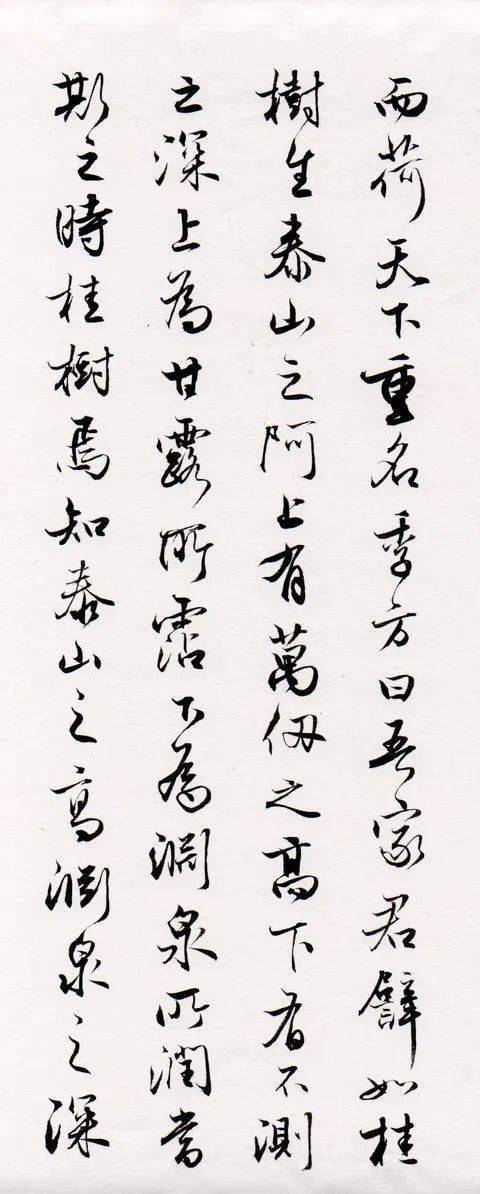 而荷天下重名季方曰吾家君譬如桂
樹生泰山之阿上有萬仞之高下有不測
之深上為甘露所霑下為淵泉所潤當
斯之時桂樹焉知泰山之高淵泉之深